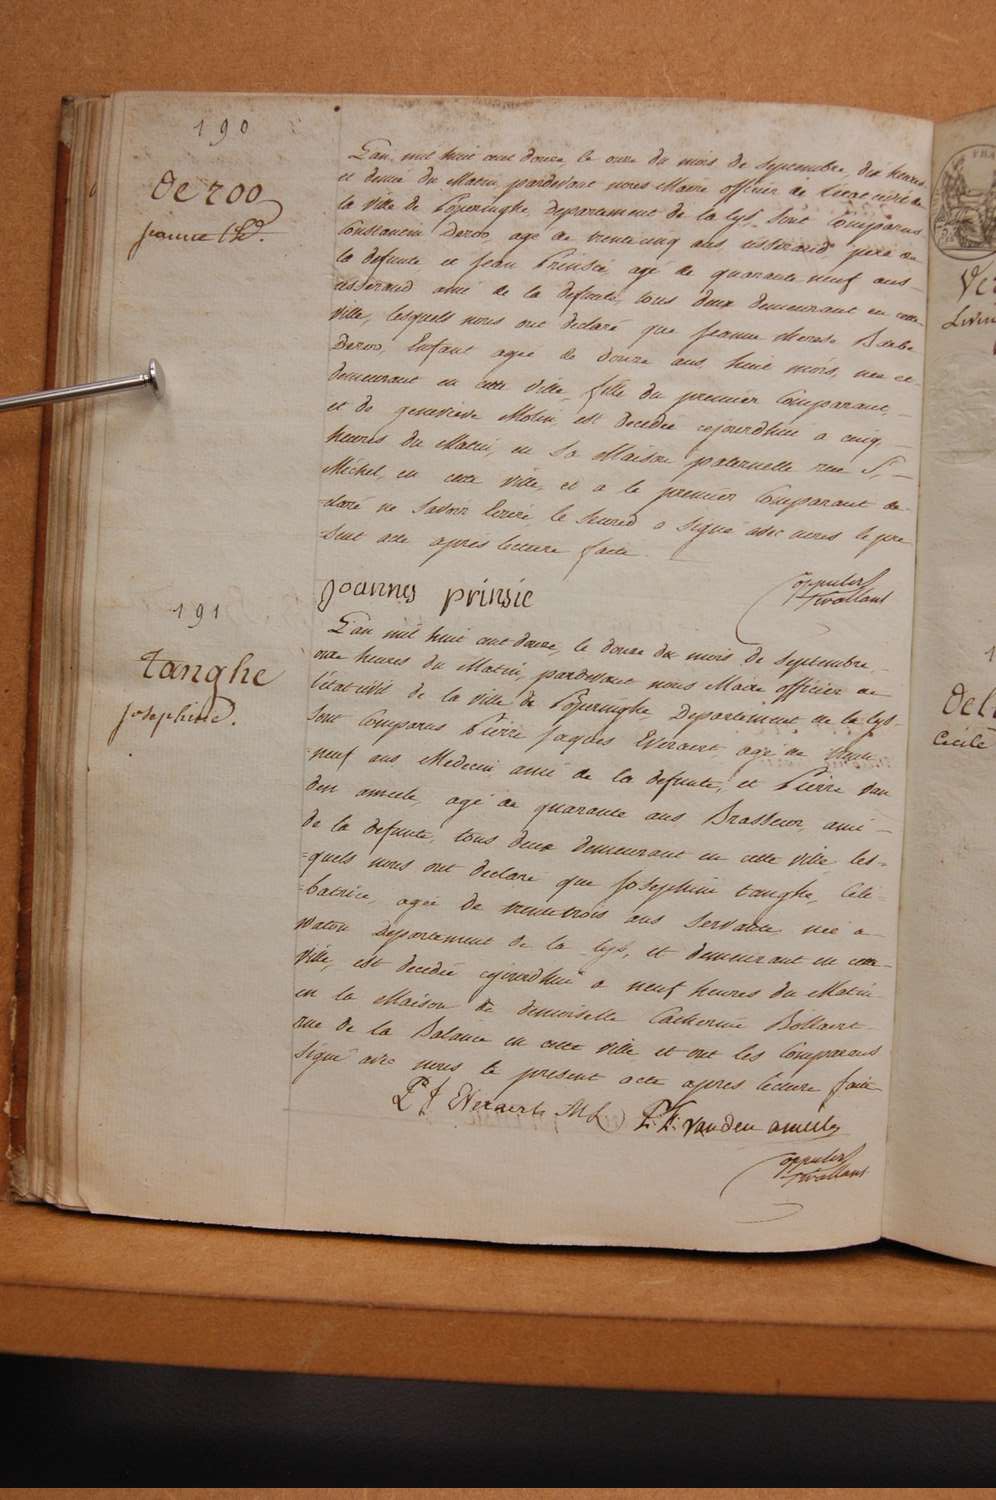 190
De roo
jeanne Th.
L'an mil huit cent douze, le onze du mois de Septembre, dix heures
et demie du Matin, pardevant nous Maire officier de L'etat civil de
la ville de Poperinghe, Departement de la Lys, Sont Comparus
Constantin Deroo, agé de trentecinq ans tisserand père de
la defunte et Jean Prinsie, agé de quarante neuf ans
tisserand ami de la defunte, tous deux demeurant en cette
ville, lesquels nous ont declaré que Jeanne therese Barbe
Deroo, Enfant agée de douze ans, huit mois, née et
demeurant en cette ville, fille du premier Comparant,
et de genevieve Molin, est decedée cejourdhui a cinq
heures du Matin, en Sa Maison paternelle rue St
Michel, en cette ville, et a le premier Comparant de-
=claré ne Savoir Ecrire, le Second a Signé avec nous le pre
=sent acte après lecture faite.
Joannes prinsie
191
Tanghe
josephine.
L'an mil huit cent douze, le douze du mois de Septembre,
onze heures du Matin, pardevant nous Maire officier de
l'état civil de la ville de Poperinghe Departement de la Lys
Sont Comparus Pierre Jaques Everaert, agé de trente
=neuf ans, Medecin ami de la defunte, et Pierre van
den ameele, agé de quarante ans Brasseur, ami
de la defunte, tous deux demeurant en cette ville les=
=quels nous ont declaré que Josephine tanghe, Celi=
=batrice, agée de trentetrois ans Servante née a
Watou Departement de la Lys, et demeurant en cette
ville, est decedée cejourdhui a neuf heures du Matin
en la Maison de demoiselle Catherine Bollaert
rue de la Balance en cette ville et ont les Comparans
Signé avec nous le present acte apres lecture faite
P J Everaert M L
P. F. vanden ameele